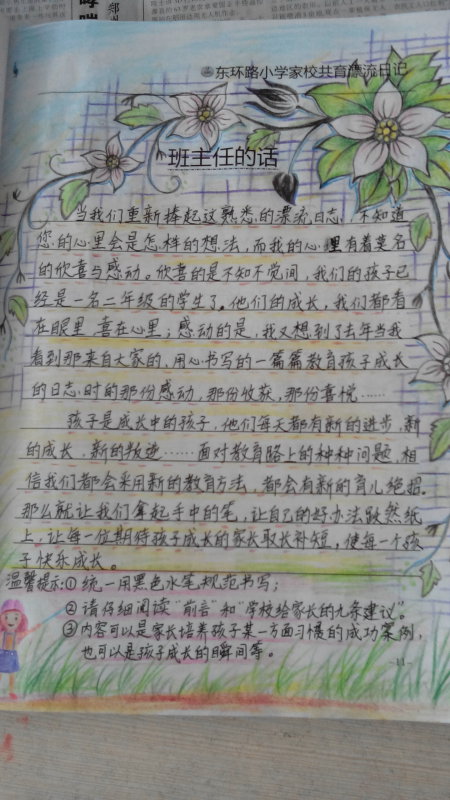 东环路小学家校共育漂流日记
班主任的话
当我们重新捧起这熟悉的漂流日志,不知道
您的心里会是怎样的想法,而我的心里有着莫名
的欣喜与感动。欣喜的是不知不觉间,我们的孩子已
经是一名二年级的学生了。他们的成长,我们都看
在眼里 喜在心里;感动的是,我又想到了去年当我
看到那来自大家的、用心书写的一篇篇教育孩子成长
的日志时的那份感动,那份收获,那份喜悦……
孩子是成长中的孩子,他们每天都有新的进步,新
的成长,新的叛逆……面对教育路上的种种问题,相
信我们都会采用新的教育方法,都会有新的育儿绝招。
那么就让我们拿起手中的笔,让自己的好办法跃然纸
上,让每一位期待孩子成长的家长取长补短,使每一个孩
子快乐成长。
温馨提示:①统一用黑色水笔规范书写;
②请仔细阅读"前言"和"学校给家长的九条建议"。
③内容可以是家长培养孩子某一方面习惯的成功案例,
也可以是孩子成长的瞬间等。
-11-